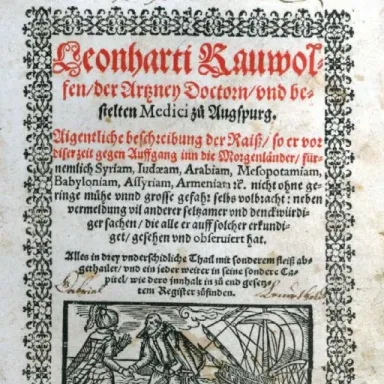 Leonharti Rauwol-
fen/ der Artzney Doctorn/ vnd be-
stelten Medici zů Augspurg.
Aigentliche beschreibung der Raiß/ so er vor
diser zeit gegen Auffgang inn die Morgenländer/ für-
nemlich Syriam, Iudæam, Arabiam, Mesopotamiam,
Babyloniam, Assyriam, Armeniam ꝛc. nicht ohne ge-
ringe mühe vnnd grosse gefahr selbs volbracht: neben
vermeldung vil anderer seltzamer vnd denckwürdi-
ger sachen/ die alle er auff solcher erkundi-
get/ gesehen vnd obseruiert hat.
Alles in drey vnderschidliche Thail mit sonderem fleiß ab-
gethailet/ vnd ein jeder weiter in seine sondere Ca-
pitel/ wie dero innhalt in zů end gesetz-
tem Register zůfinden.